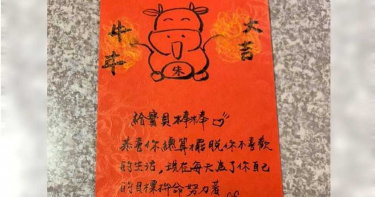 牛年
大吉
朱
給寶貝棒棒
恭喜你總算擺脫你不喜歡
的生活,現在每天為了你自己
的目標拚命努力著